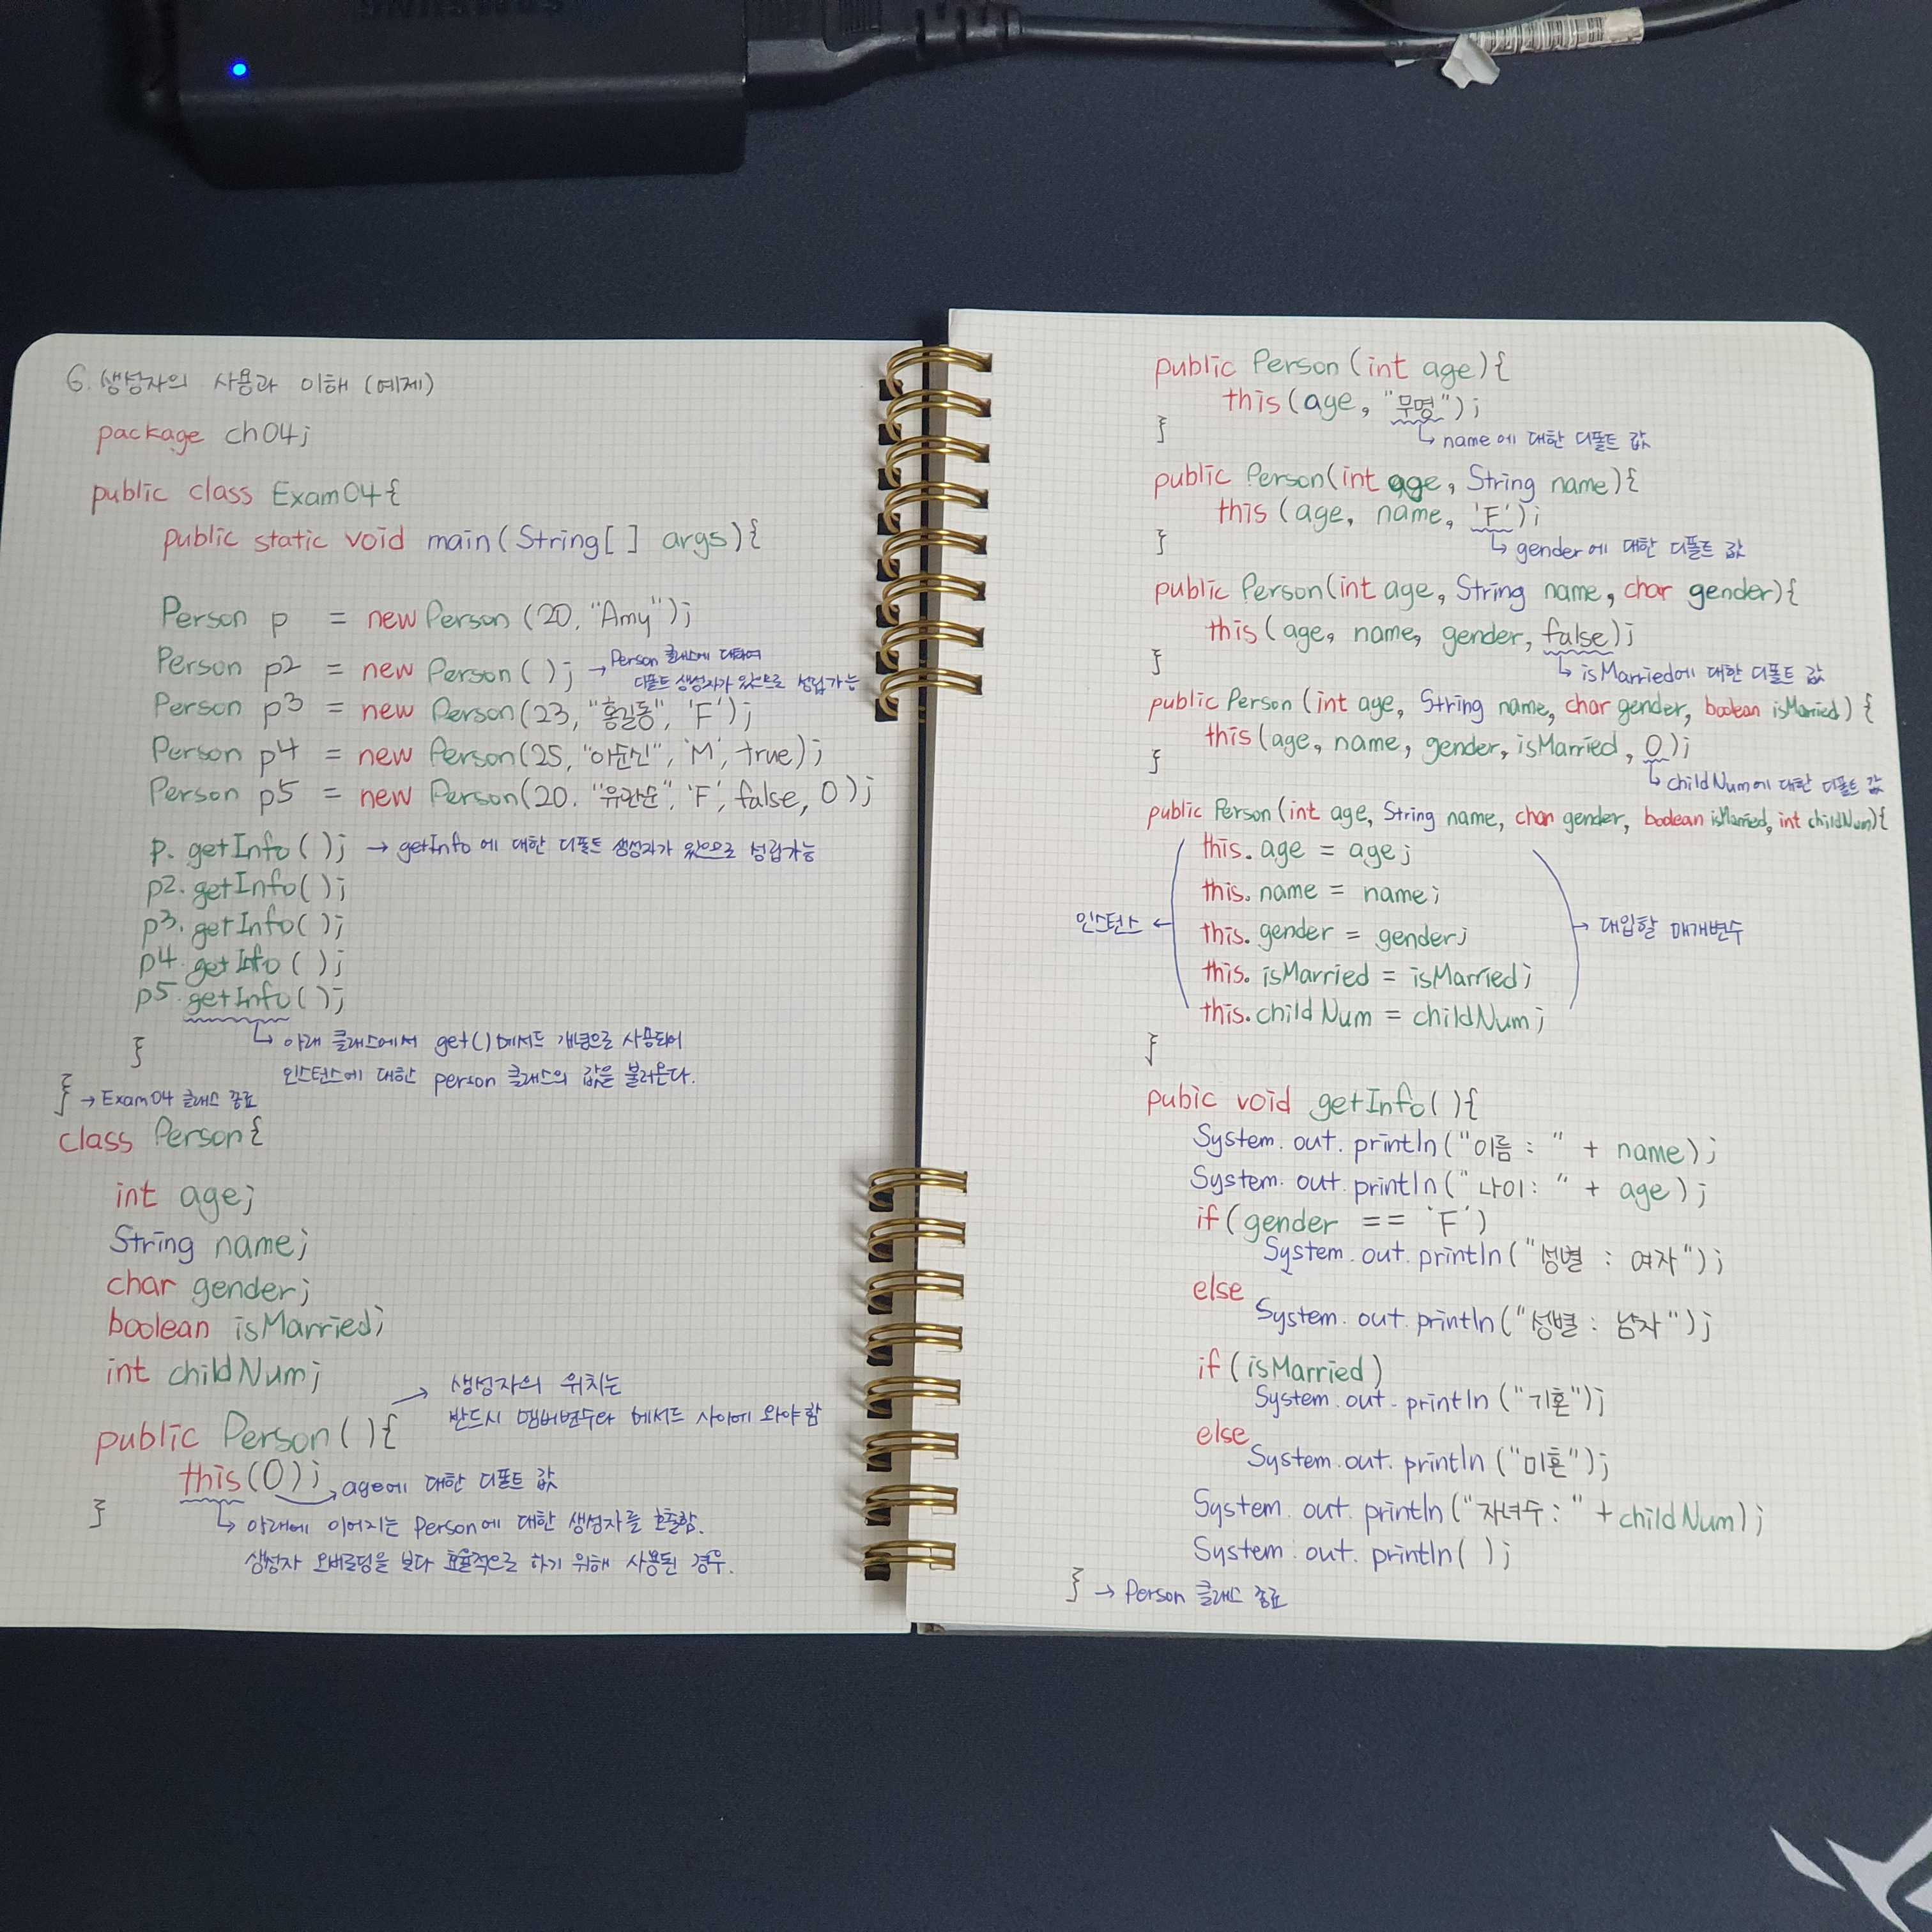 6. 생성자의 사용과 이해 (예제)
package ch04;
public class Exam04{
public static void main(String[ ] args){
Person p = new Person (20, "Amy");
Person p2 = new Person ( ); → Person 클래스에 대하여
디폴트 생성자가 있으므로 성립가능
Person p3 = new Person(23, "홍길동", 'F');
Person p4 = new Person(25, "이순신", 'M', true);
Person p5 = new Person(20. "유관순", 'F', false, 0);
p. getInfo ( ); → getInfo 에 대한 디폴트 생성자가 있으므로 성립가능
p2. getInfo( );
p3. getInfo( );
p4. getInfo ( );
p5. getInfo ( );
↳ 아래 클래스에서 get( ) 메서드 개념으로 사용되어
인스턴스에 대한 person 클래스의 값을 불러온다.
}
} → Exam04 클래스 종료
class Person{
int age;
String name;
char gender;
boolean isMarried;
int childNum;
→ 생성자의 위치는
반드시 멤버변수와 메서드 사이에 와야함
public Person( ){
this(0); → age에 대한 디폴트 값
}
↳ 아래에 이어지는 Person에 대한 생성자를 호출함.
생성자 오버로딩을 보다 효율적으로 하기 위해 사용된 경우.
public Person (int age){
this(age, "무명");
}
↳ name에 대한 디폴트 값
public Person(int age, String name){
this (age, name, 'F');
}
↳ gender에 대한 디폴트 값
public Person(int age, String name, char gender){
this (age, name, gender, false);
}
↳ isMarried에 대한 디폴트 값
public Person (int age, String name, char gender, boolean isMarried) {
this(age, name, gender, isMarried, 0);
}
↳ childNum에 대한 디폴트 값
public Person (int age, String name, char gender, boolean isMarried, int childNum){
this. age = age;
this. name = name;
인스턴스 ← this. gender = gender; → 대입할 매개변수
this. isMarried = isMarried;
this. childNum = childNum;
}
pubic void getInfo( ){
System. out. println("이름 : " + name);
System. out. println(" 나이 : " + age);
if (gender == 'F')
System. out. println("성별 : 여자");
else
System. out. println("성별 : 남자");
if (isMarried)
System. out. println ("기혼");
else
System. out. println ("미혼");
System. out. println("자녀수 : " + childNum);
System. out. println( );
} → Person 클래스 종료